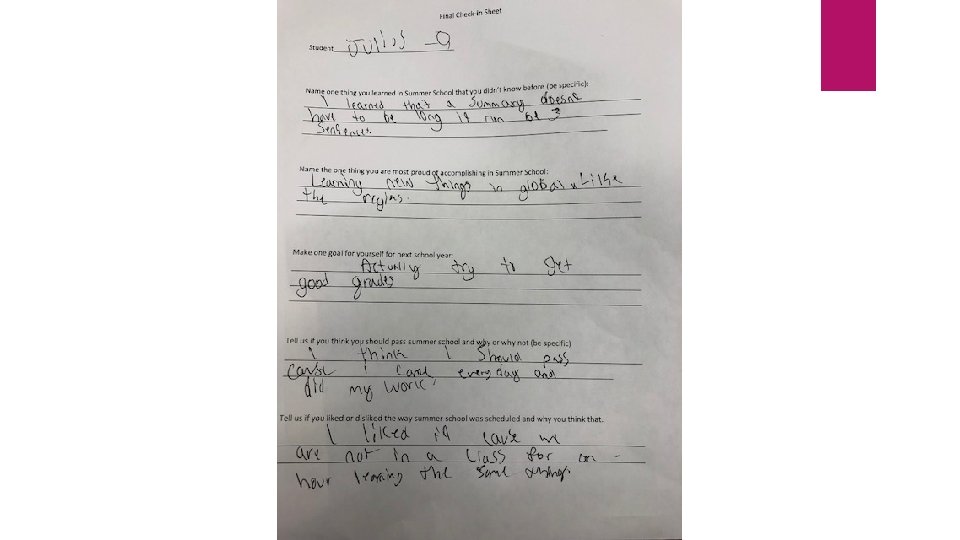 Final Check in Sheet
Student Julios -9
Name one thing you learned in Summer School that you didn't know before (be specific):
I learned that a Summary doesnt
have to be long it can be 3
Sentences.
Name the one thing you are most proud of accomplishing in Summer School:
Learning new things in global like
the
Make one goal for yourself for next school year
Actually try to get
good grades
Tell us if you think you should pass summer school and why or why not (be specific)
I think I Should pass
cause I came everyday and
did my work
Tell us if you liked or disliked the way summer school was scheduled and why you think that.
I liked it cause we
are not in a class for an
hour learning the same things